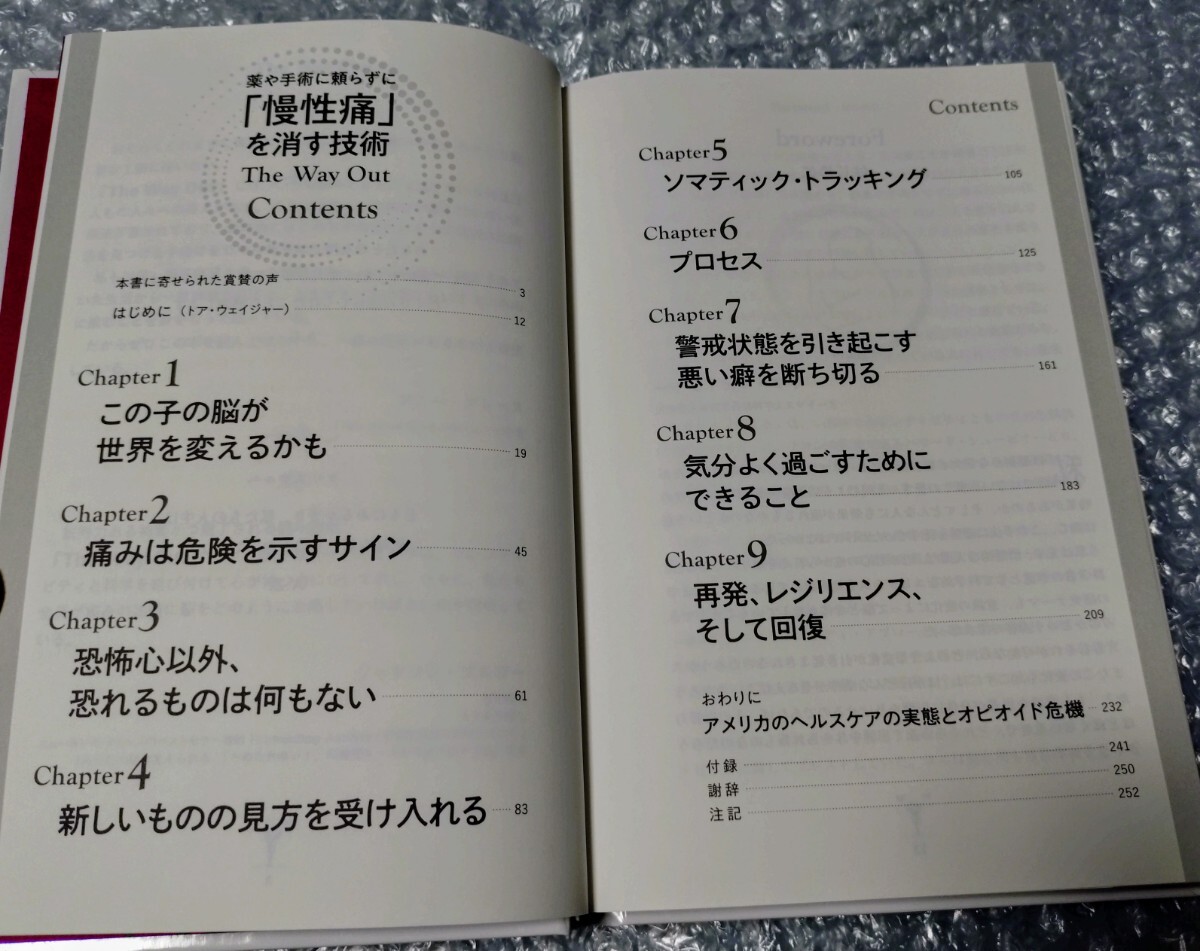 薬や手術に頼らずに
「慢性痛」
を消す技術
The Way Out
Contents
本書に寄せられた賞賛の声 3
はじめに（トア・ウェイジャー） 12
Chapter 1
この子の脳が
世界を変えるかも 19
Chapter 2
痛みは危険を示すサイン 45
Chapter 3
恐怖心以外、
恐れるものは何もない 61
Chapter 4
新しいものの見方を受け入れる 83
Contents
Chapter 5
ソマティック・トラッキング 105
Chapter 6
プロセス 125
Chapter 7
警戒状態を引き起こす
悪い癖を断ち切る 161
Chapter 8
気分よく過ごすために
できること 183
Chapter 9
再発、レジリエンス、
そして回復 209
おわりに
アメリカのヘルスケアの実態とオピオイド危機 232
付録 241
謝辞 250
注記 252